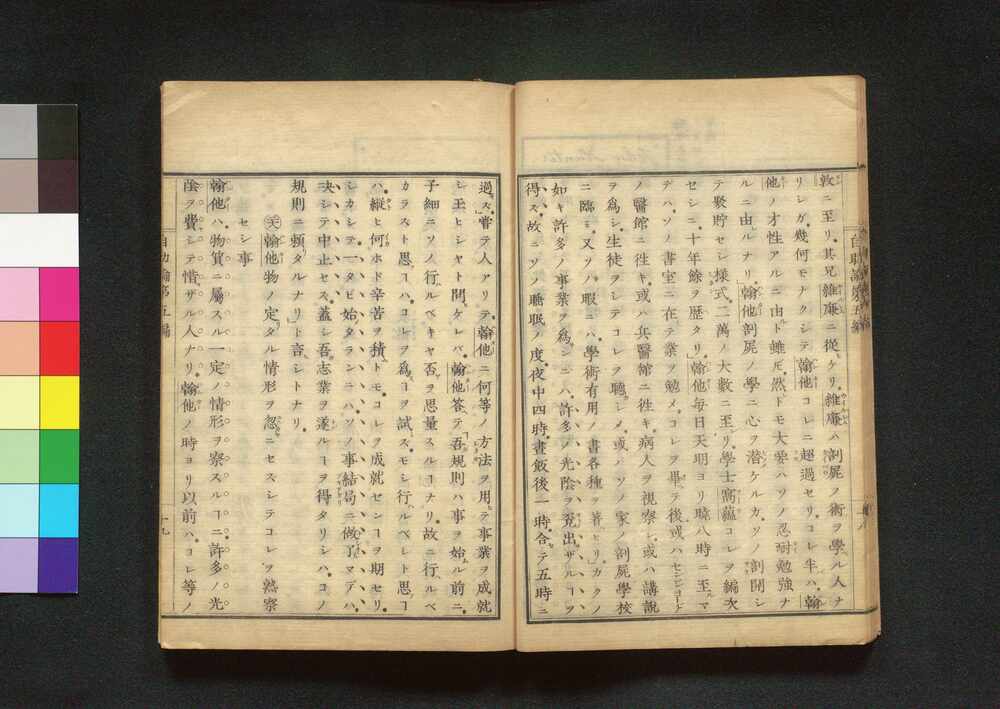 敦ニ至リ。其兄維廉ニ從ケリ。維廉ハ剖屍ノ術ヲ學ル人ナ
リシガ。幾何モナクシテ翰他コレニ超過セリ。コレ半ハ。翰
他ノオ性アルニ由ト雖𪜈。然トモ大要ハソノ忍耐勉強ナ
ルニ由ルナリ翰他剖屍ノ學ニ心ヲ潛ケルカ。ソノ剖開シ
テ聚貯セシ樣式。二萬ノ大數ニ至リ。學士窩蘊コレヲ編次
セシニ。十年餘ヲ歷タリ。翰他每日天明ヨリ曉八時ニ至マ
デハ。ソノ書室ニ在テ業ヲ勉メ。コレヲ畢テ後或ハセンジヨージ
ノ醫館ニ徃キ或ハ兵醫館ニ徃キ病人ヲ視察シ。或ハ講說
ヲ爲シ。生徒ヲシテコレヲ聽シメ。或ハソノ家ノ剖屍學校
ニ臨ミ。又ソノ暇ニハ。學術有用ノ書各種ヲ著ヒリ。カクノ
如キ許多ノ事業ヲ爲シニハ。許多ノ光陰ヲ兗出ザルヿヲ
得ス。故ニソノ聽眠ノ度。夜中四時。晝飯後一時。合テ五時ニ
過ズ。」嘗テ人アリテ。翰他ニ何等ノ方法ヲ用テ事業ヲ成就
シ玉ヒシヤト問ケレバ。翰他答テ吾規則ハ事ヲ始ル前ニ。
子細ニソノ行ルベキヤ否ヲ思量スルヿナリ。故ニ行ルベ
カラスト思ヿハ。コレヲ爲ヿヲ試ス。モシ行ルベシト思ヿ
ハ。縱ヒ何ホド辛苦ヲ積トモ。コレヲ成就センヿヲ期セリ。
シカシテ一タビ始タランニハ。ソノ事結局ニ做了マデハ。
决シテ中止セス。蓋シ吾志業ヲ遂ルヿヲ得タリシハ。コノ
規則ニ頼タルナリト言シトナリ。
翰他物ノ定タル情形ヲ忽ニセスシテコレヲ察
セシ事
翰他ハ。物質ニ屬スル一定ノ情形ヲ察スルヿニ。許多ノ光
陰ヲ費シテ惜ザル人ナリ。翰他ノ時ヨリ以前ハ。コレ等ノ